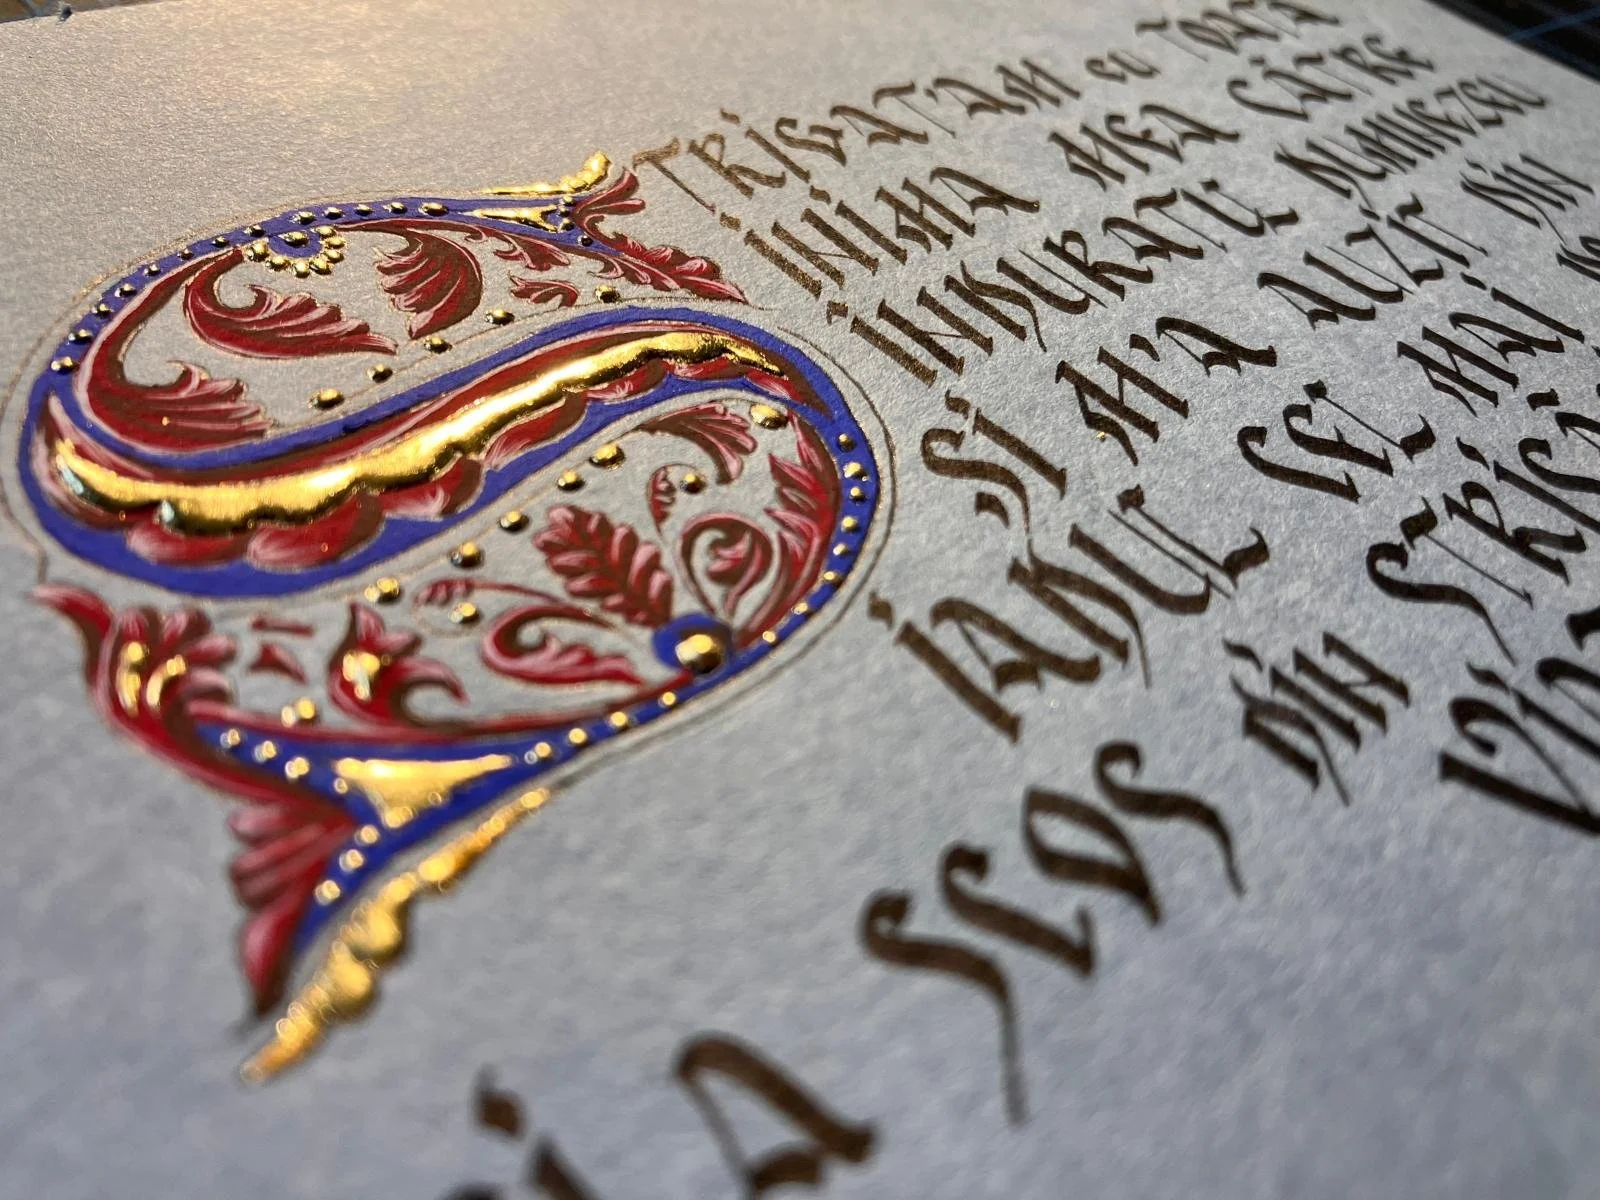 STRIGAT'AM CU TOATĂ
INIMA MEA CĂTRE
INDURATUL DUMNEZEU
ȘI M'A AUZIT DIN
IADUL CEL MAI
A SCOS DIN